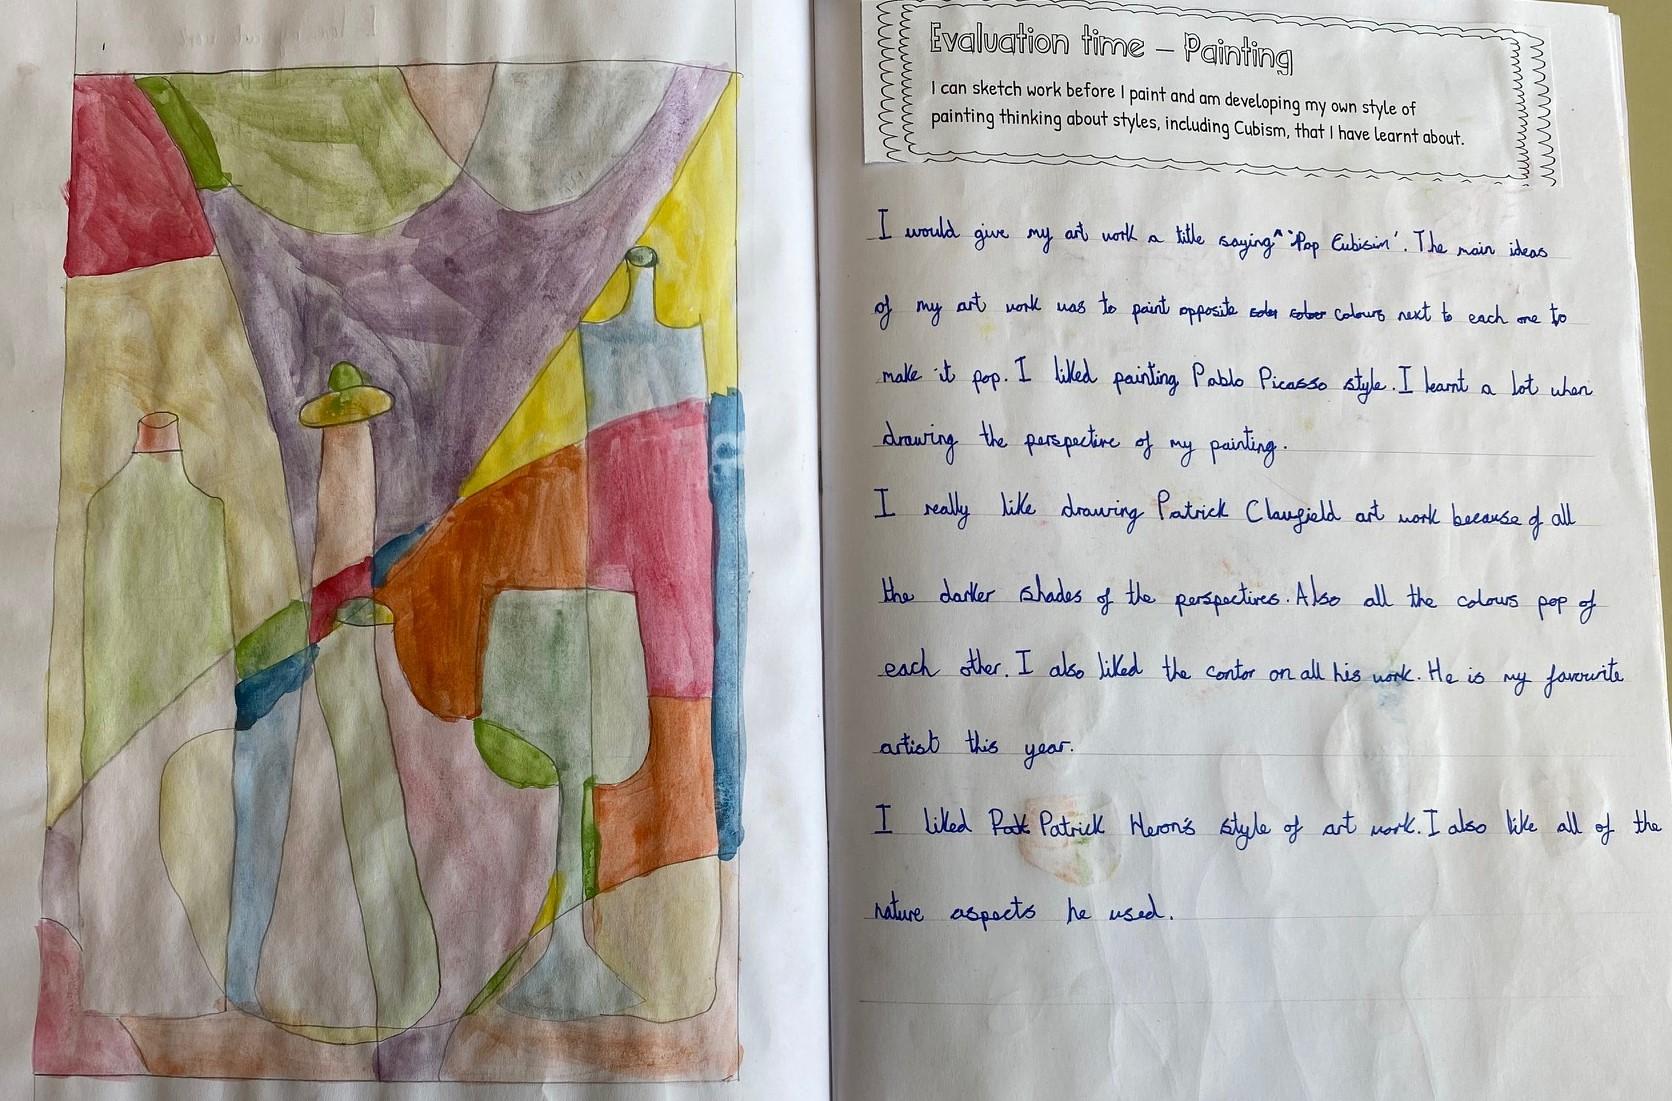 Evaluation time – Painting
I can sketch work before I paint and am developing my own style of
painting thinking about styles, including Cubism, that I have learnt about.
I would give my art work a title saying^ 'Pop Cubisim'. The main ideas
of my art work was to paint opposite colours next to each one to
make it pop. I liked painting Pablo Picasso style. I learnt a lot when
drawing the perspective of my painting.
I really like drawing Patrick Claufield art work because of all
the darker shades of the perspectives. Also all the colours pop of
each other. I also liked the contor on all his work. He is my favourite
artist this year.
I liked Patrick Heron's style of art work. I also like all of the
nature aspects he used.